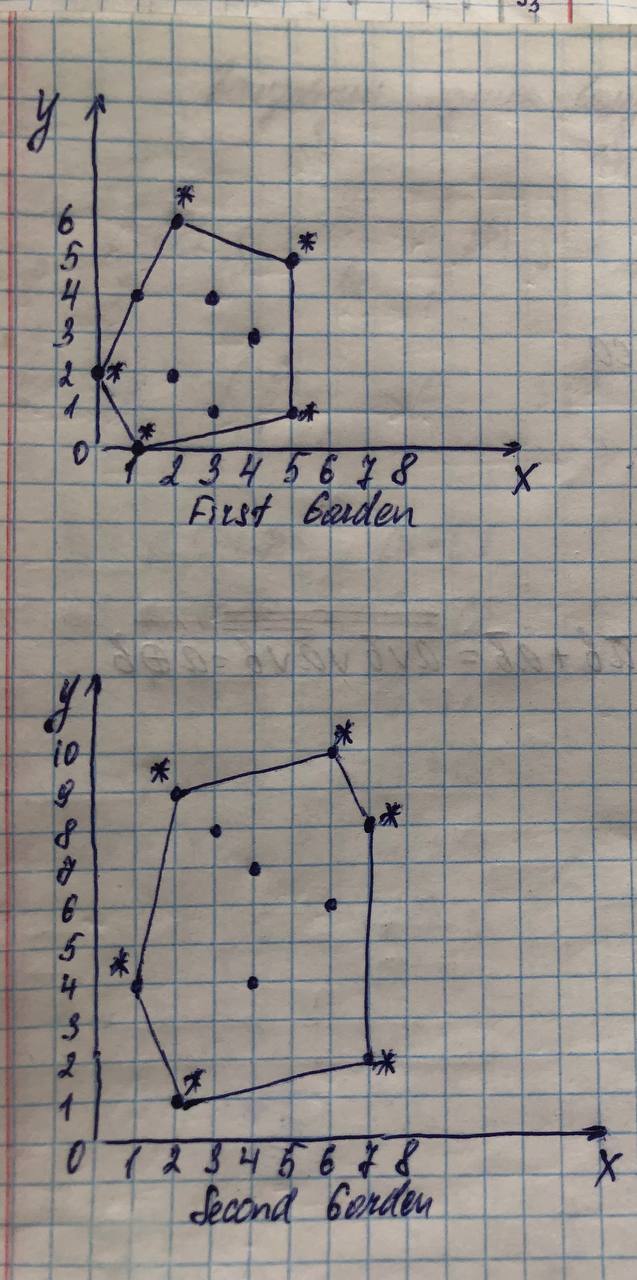 y
6
5
4
3
2
1
0
1 2 3 4 5 6 7 8
X
First Garden
y
10
9
8
7
6
5
4
3
2
1
0 1 2 3 4 5 6 7 8
X
Second Garden